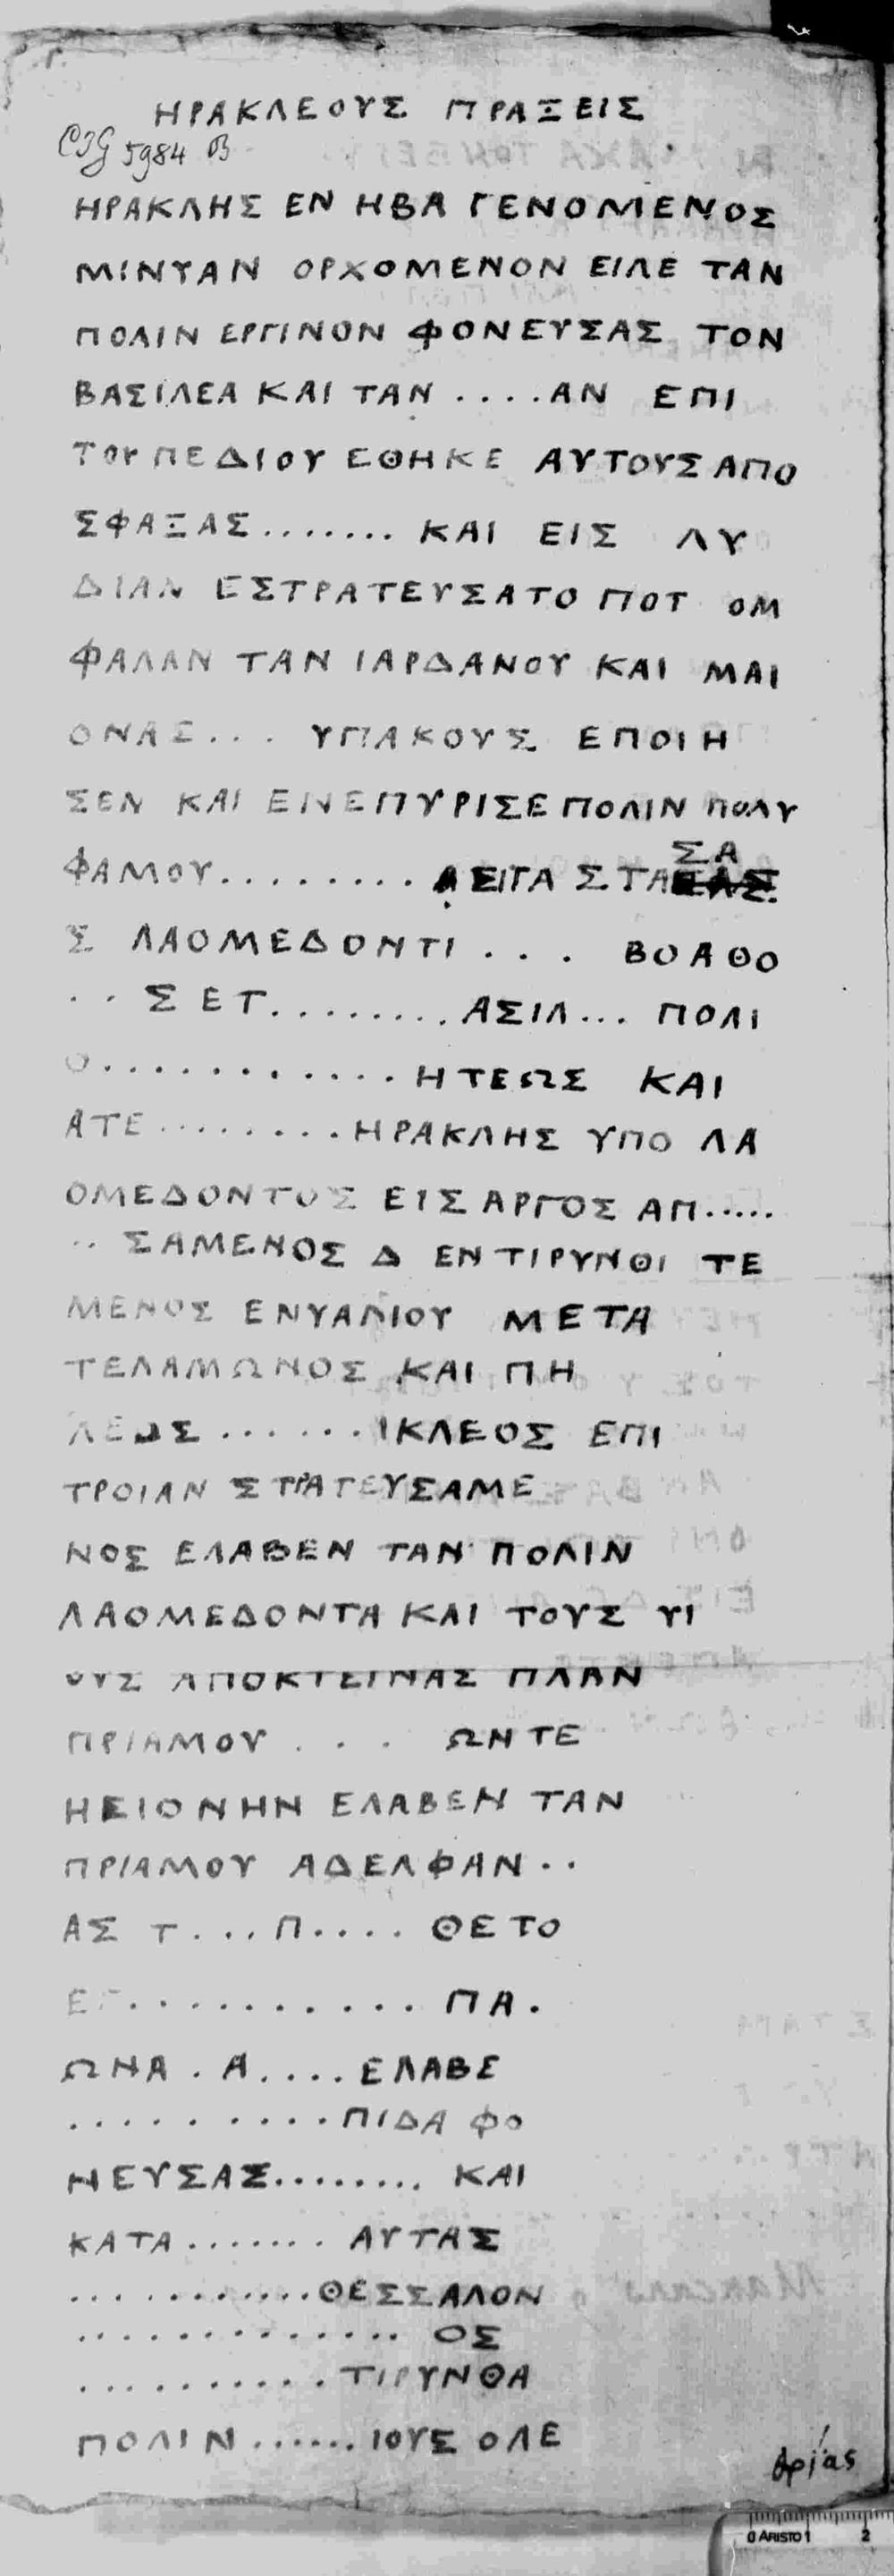 ΗΡΑΚΛΕΟΥΣ ΠΡΑΞΕΙΣ
CIG 5984 B
ΗΡΑΚΛΗΣ ΕΝ ΗΒΑ ΓΕΝΟΜΕΝΟΣ
ΜΙΝΥΑΝ ΟΡΧΟΜΕΝΟΝ ΕΙΛΕ ΤΑΝ
ΠΟΛΙΝ ΕΡΓΙΝΟΝ ΦΟΝΕΥΣΑΣ ΤΟΝ
ΒΑΣΙΛΕΑ ΚΑΙ ΤΑΝ ....ΑΝ ΕΠΙ
ΤΟΥ ΠΕΔΙΟΥ ΕΘΗΚΕ ΑΥΤΟΥΣ ΑΠΟ
ΣΦΑΞΑΣ....... ΚΑΙ ΕΙΣ ΛΥ
ΔΙΑΝ ΕΣΤΡΑΤΕΥΣΑΤΟ ΠΟΤ ΟΜ
ΦΑΛΑΝ ΤΑΝ ΙΑΡΔΑΝΟΥ ΚΑΙ ΜΑΙ
ΟΝΑΣ... ΥΠΑΚΟΥΣ ΕΠΟΙΗ
ΣΕΝ ΚΑΙ ΕΝΕΠΥΡΙΣΕ ΠΟΛΙΝ ΠΟΛΥ
ΦΑΜΟΥ......... ΑΕΙΓΑ ΣΤΑΣΑ
Σ ΛΑΟΜΕΔΟΝΤΙ ... ΒΟΑΘΟ
..ΣΕΤ.........ΑΣΙΛ... ΠΟΛΙ
Ο............ΗΤΕΩΣ ΚΑΙ
ΑΤΕ.........ΗΡΑΚΛΗΣ ΥΠΟ ΛΑ
ΟΜΕΔΟΝΤΟΣ ΕΙΣ ΑΡΓΟΣ ΑΠ.....
..ΣΑΜΕΝΟΣ Δ ΕΝ ΤΙΡΥΝΘΙ ΤΕ
ΜΕΝΟΣ ΕΝΥΑΛΙΟΥ ΜΕΤΑ
ΤΕΛΑΜΩΝΟΣ ΚΑΙ ΠΗ
ΛΕΩΣ ......ΙΚΛΕΟΣ ΕΠΙ
ΤΡΟΙΑΝ ΣΤΡΑΤΕΥΣΑΜΕ
ΝΟΣ ΕΛΑΒΕΝ ΤΑΝ ΠΟΛΙΝ
ΛΑΟΜΕΔΟΝΤΑ ΚΑΙ ΤΟΥΣ ΥΙ
ΟΥΣ ΑΠΟΚΤΕΙΝΑΣ ΠΛΑΝ
ΠΡΙΑΜΟΥ ... ΩΝ ΤΕ
ΗΕΙΟΝΗΝ ΕΛΑΒΕΝ ΤΑΝ
ΠΡΙΑΜΟΥ ΑΔΕΛΦΑΝ..
ΑΣ Τ...Π.... ΘΕΤΟ
ΕΓ........... ΠΑ.
ΩΝΑ.Α....ΕΛΑΒΕ
..........ΠΙΔΑ ΦΟ
ΝΕΥΣΑΣ........ ΚΑΙ
ΚΑΤΑ....... ΑΥΤΑΣ
...........ΘΕΣΣΑΛΟΝ
............. ΟΣ
..........ΤΙΡΥΝΘΑ
ΠΟΛΙΝ......ΙΟΥΣ ΟΛΕ
0 ARISTO 1 2